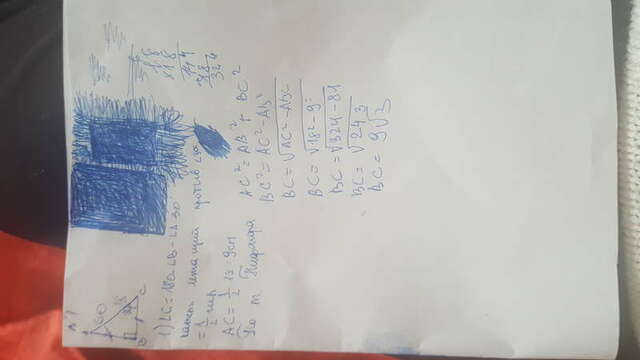 №1
A
60
18
30
B
C
1) ∠C = 180 - ∠B - ∠A 30
катет лежащий против 30°
= 1/2 гип
AC = 1/2 18 = 9см
По т. Пифагора
AC² = AB² + BC²
BC² = AC² - AB²
BC = √AC² - AB²
BC = √18² - 9²
BC = √324 - 81
BC = √243
BC = 9√3
18
×18
144
18
324